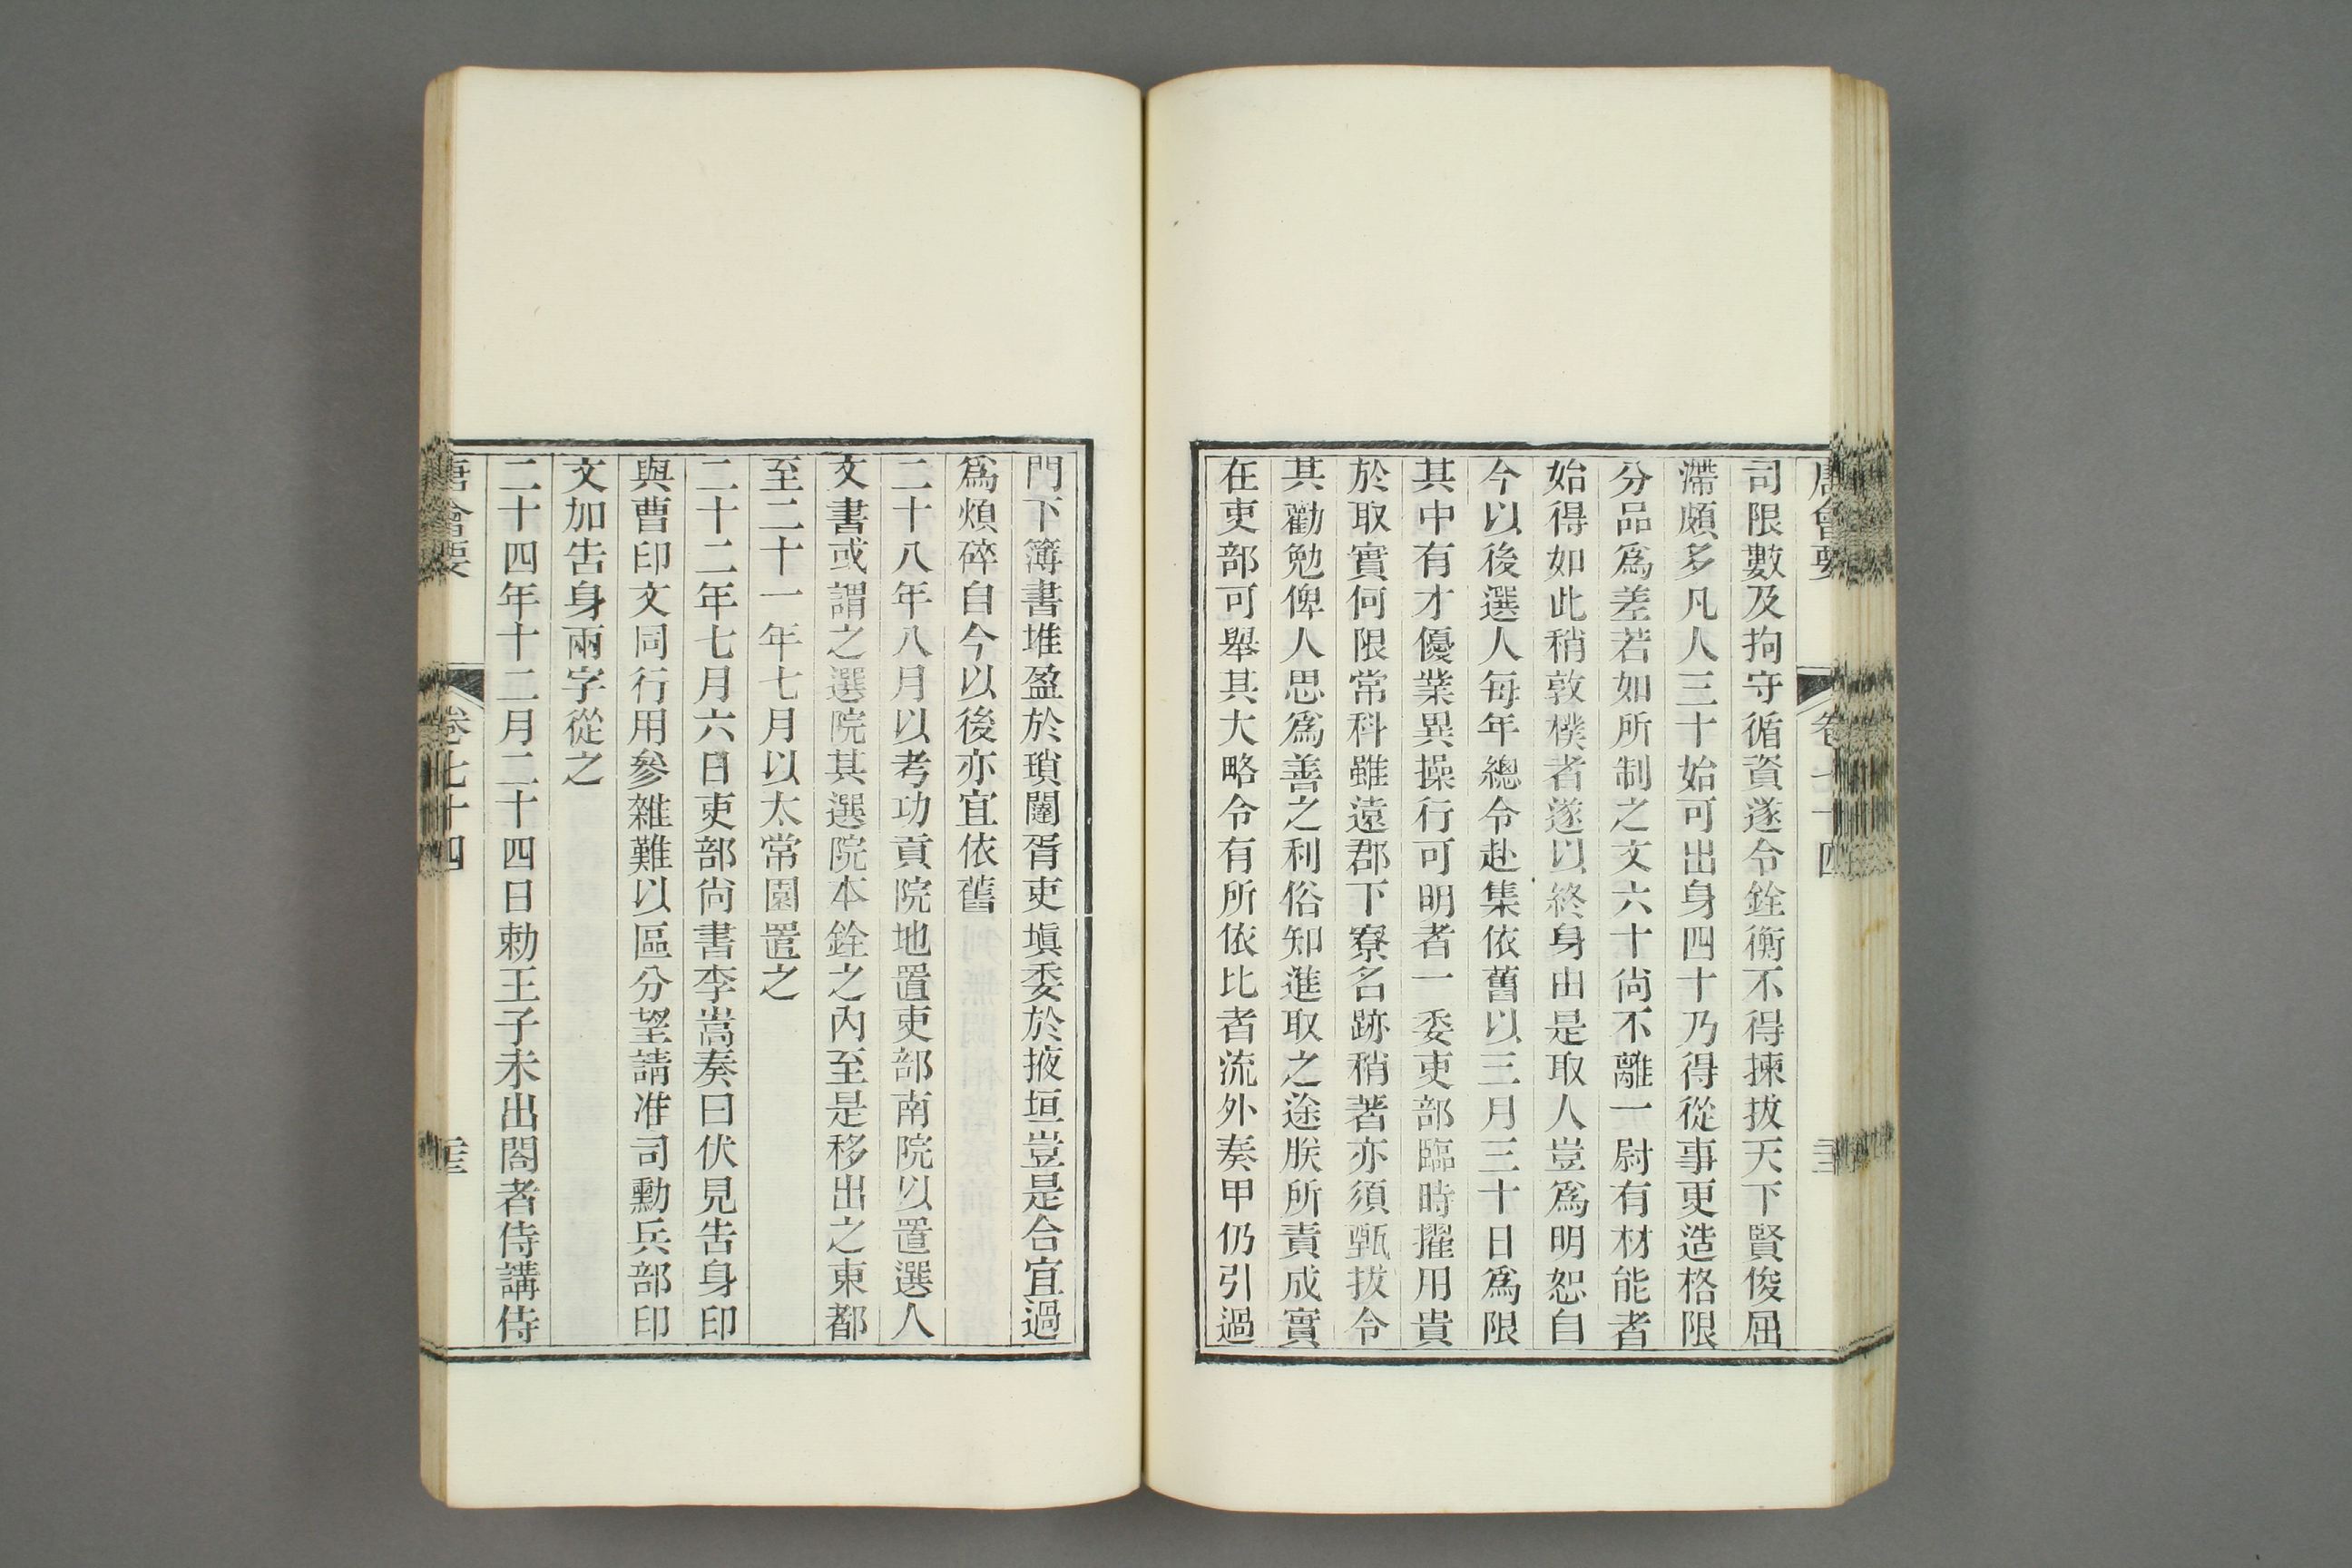 唐會要 卷七十四
司限數及拘守循資遂令銓衡不得揀拔天下賢俊屈
滯頗多凡人三十始可出身四十乃得從事更造格限
分品爲差若如所制之文六十尙不離一尉有材能者
始得如此稍敦樸者遂以終身由是取人豈爲明恕自
今以後選人每年總令赴集依舊以三月三十日爲限
其中有才優業異操行可明者一委吏部臨時擢用貴
於取實何限常科雖遠郡下寮名跡稍著亦須甄拔令
其勸勉俾人思爲善之利俗知進取之途朕所責成實
在吏部可舉其大略令有所依比者流外奏甲仍引過
門下簿書堆盈於瑣闥胥吏塡委於掖垣豈是合宜過
爲煩碎自今以後亦宜依舊
二十八年八月以考功貢院地置吏部南院以置選人
文書或謂之選院其選院本銓之內至是移出之東都
至二十一年七月以太常園置之
二十二年七月六日吏部尙書李嵩奏曰伏見告身印
與曹印文同行用參雜難以區分望請准司勳兵部印
文加告身兩字從之
二十四年十二月二十四日勅王子未出閤者侍講侍
唐會要 卷七十四